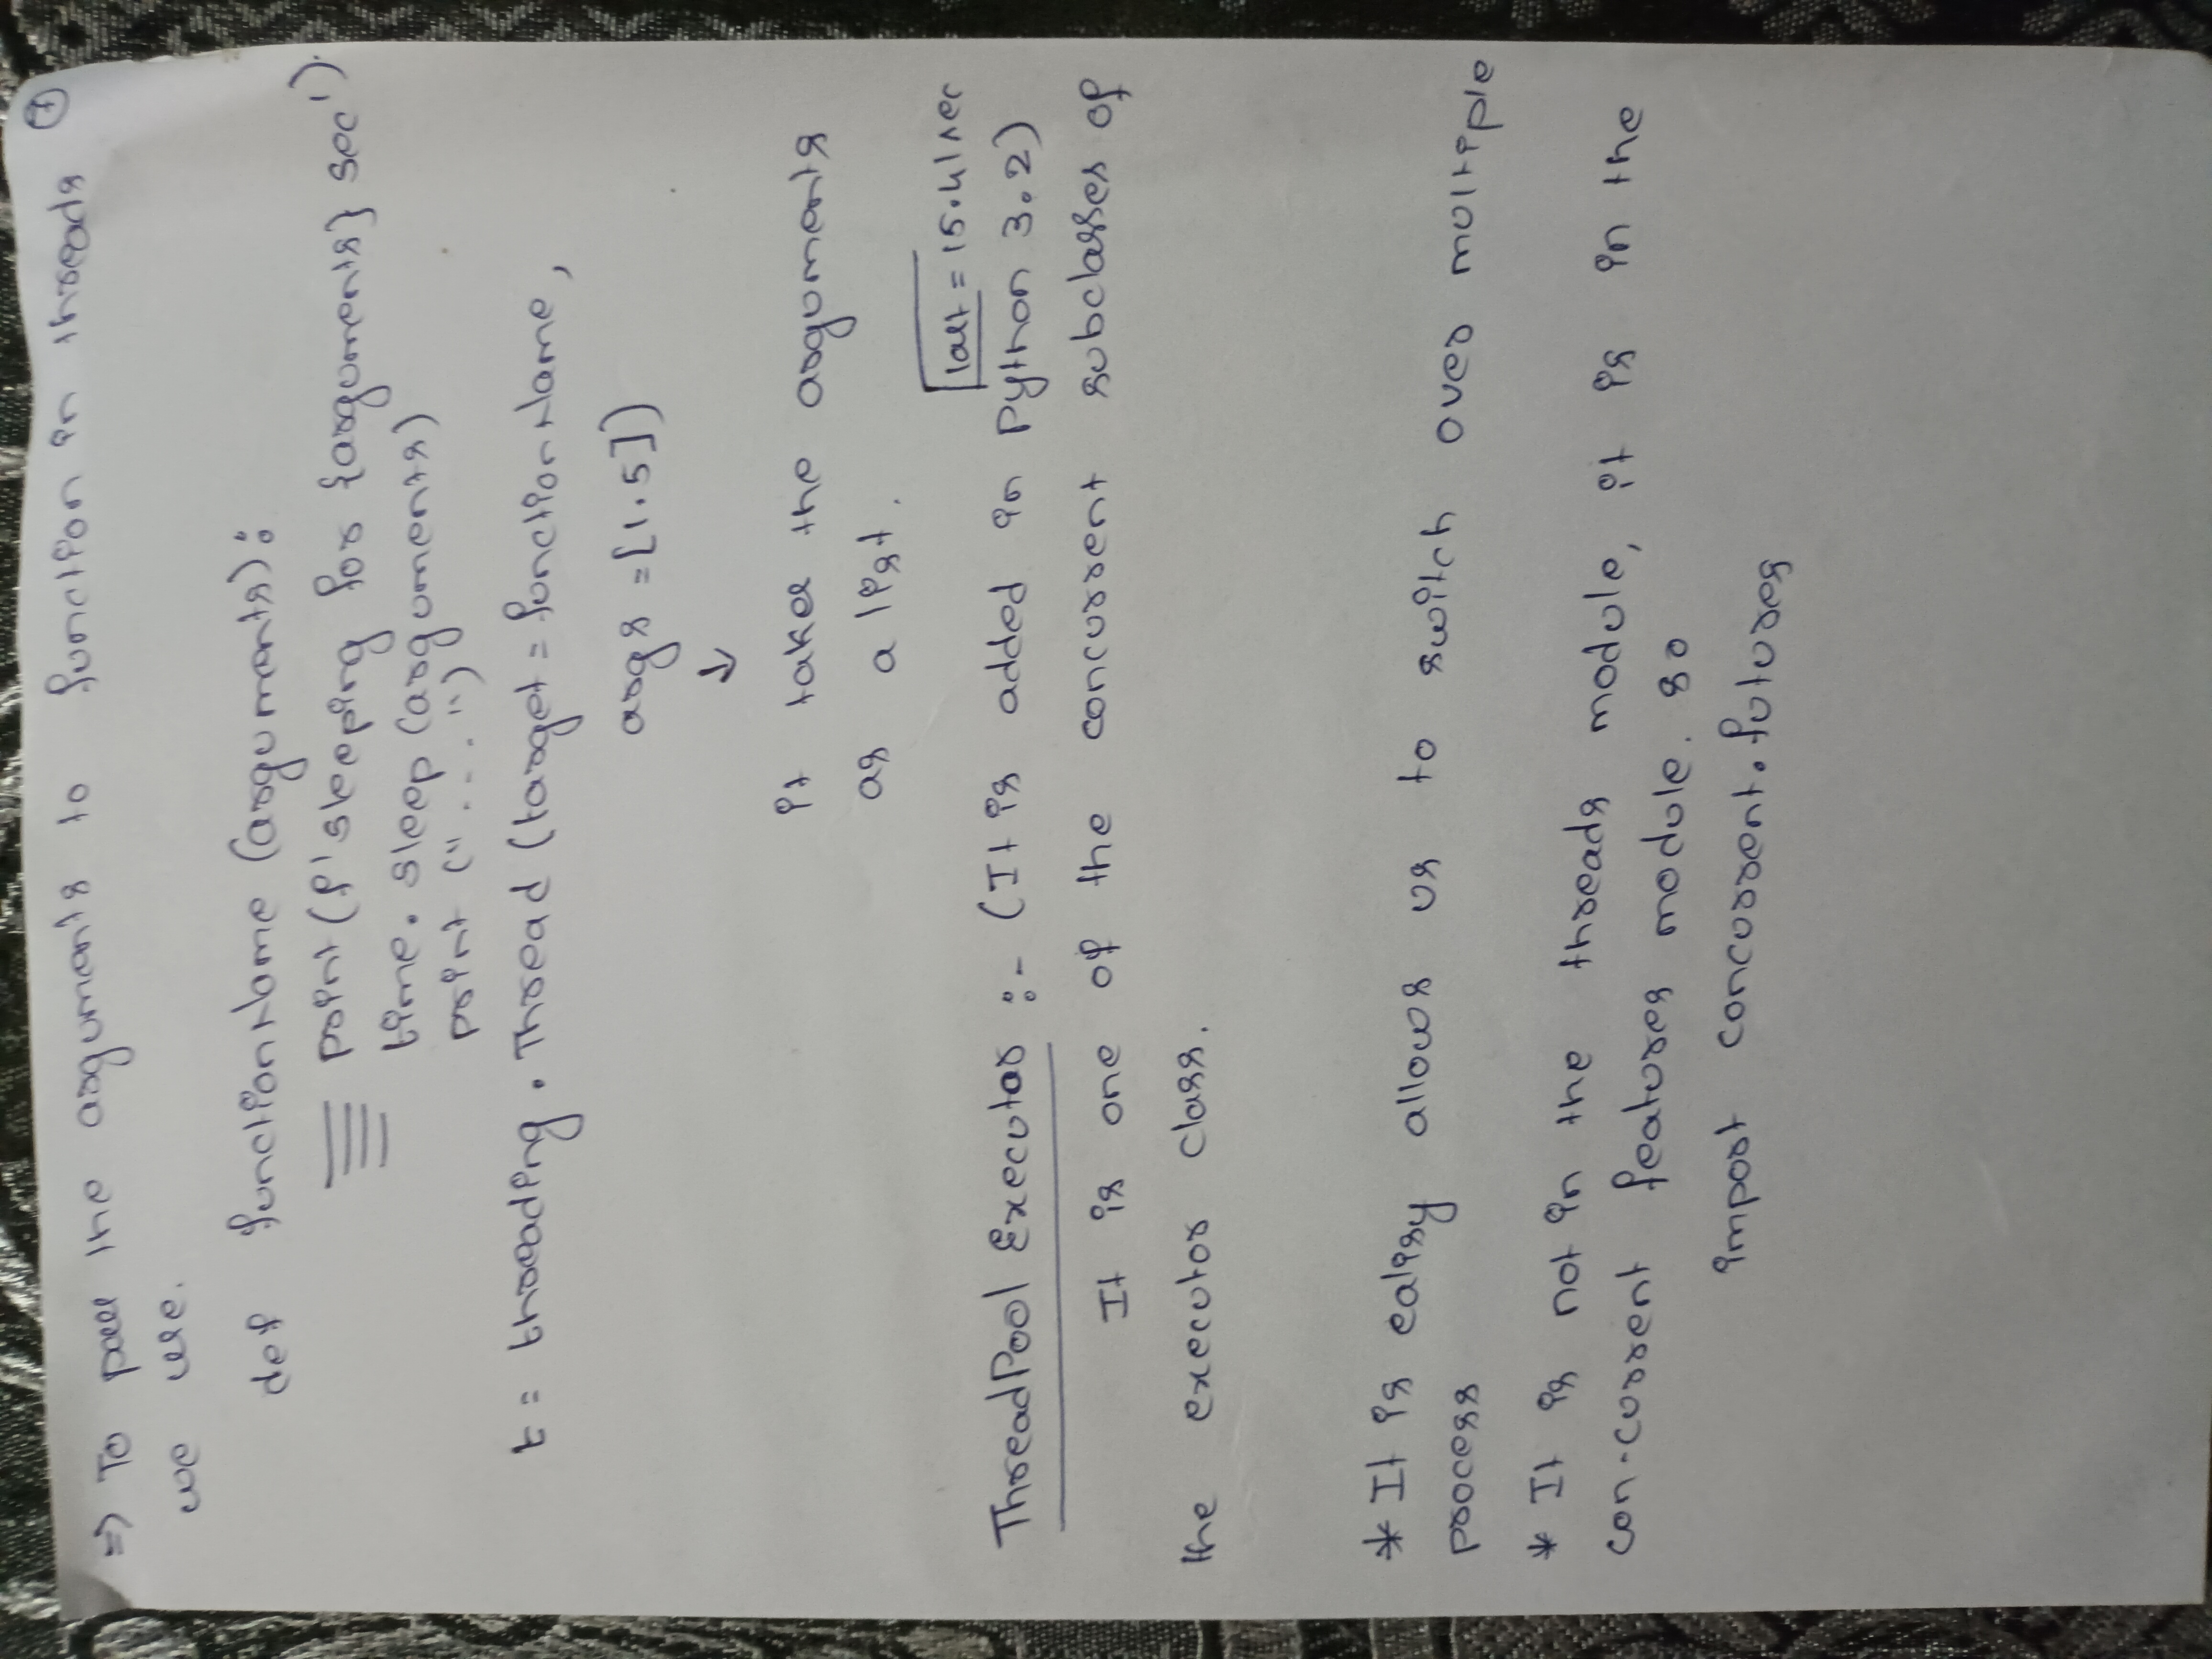 ⑦
=> To pass the arguments to function in threads
we use.
def functionName (arguments):
print (f'sleeping for {arguments} sec')
time. sleep (arguments)
print (" . . . . ")
t = threading . Thread (target = functionName,
args = [1.5])
↓
it takes the arguments
as a list.
last = 15.41 sec
ThreadPool Executor :- (It is added in Python 3.2)
It is one of the concurrent subclasses of
the executor class.
* It is ealisy allows us to switch over multiple
process
* It is not in the threads module, it is in the
con-current features module. so
import concurrent. futures